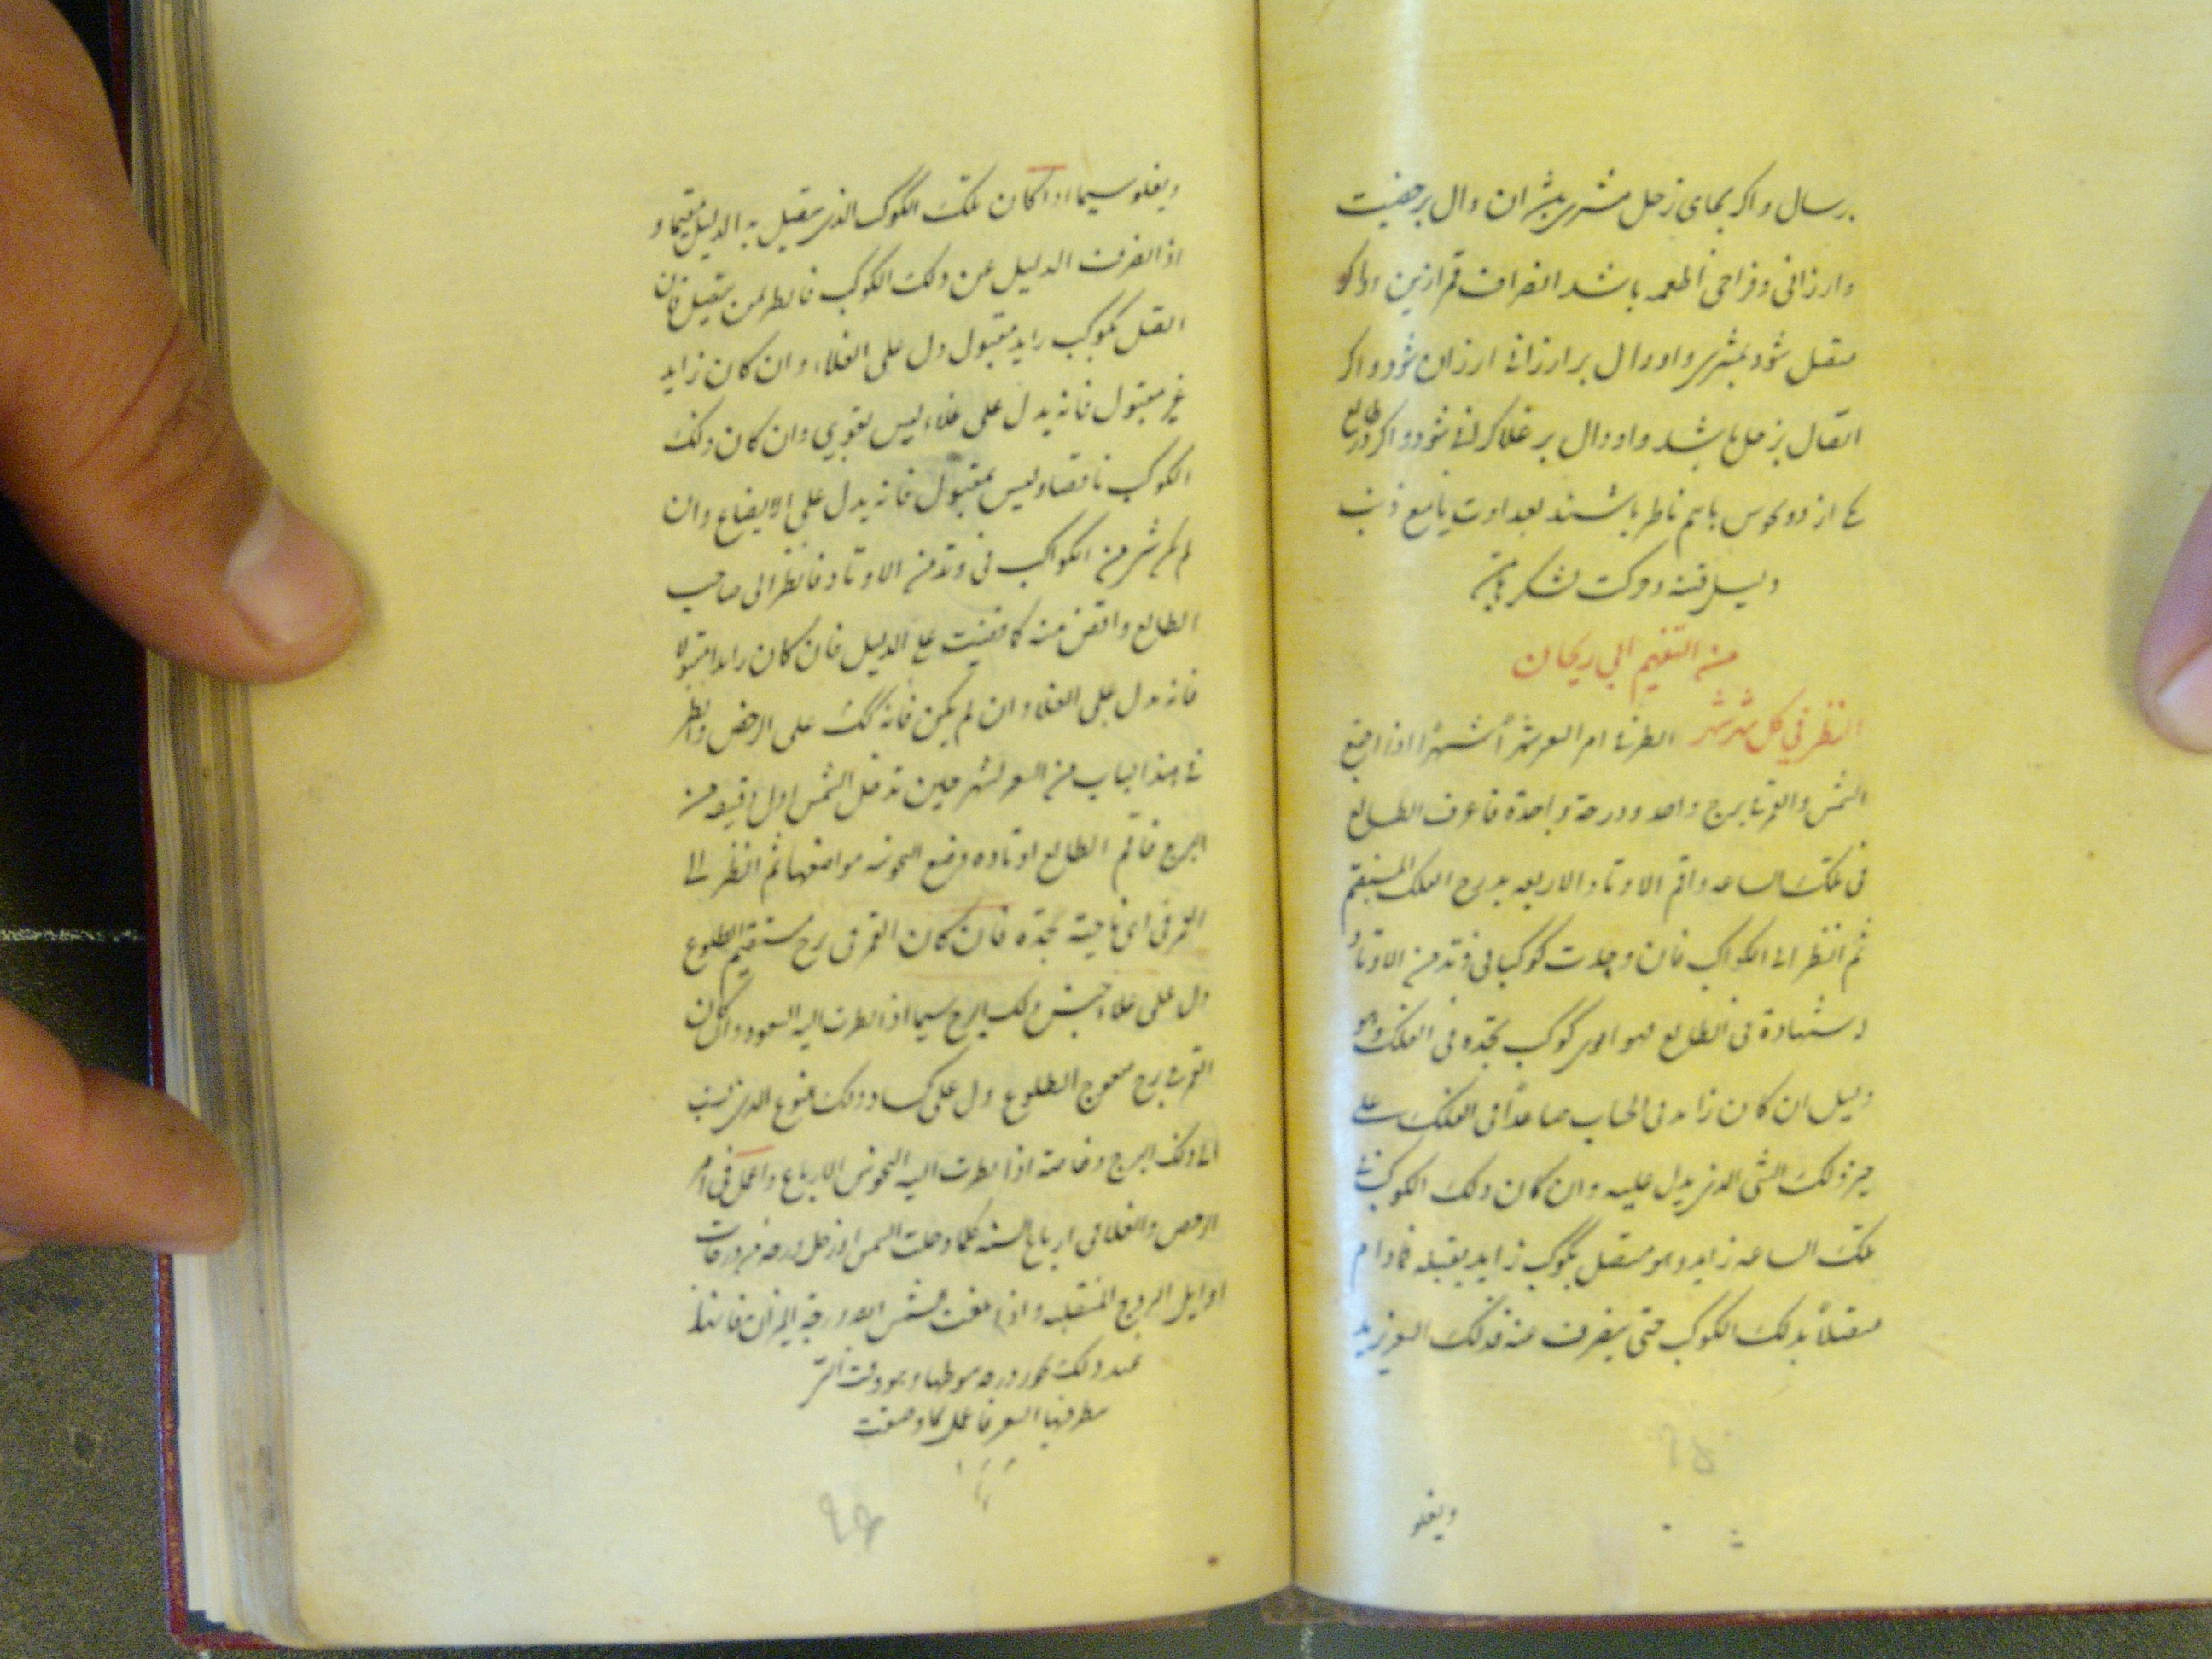 برسال و اکر بجای زحل مشتری باشد ان دال بر خصب
و ارزانی و فراخی اطعمه باشد انصراف قمر ازین دو اکر
متصل شود بمشتری و او دال بر ارزانی ارزان شود و اکر
اتصال بزحل باشد و او دال بر غلا کرانی شود و اکر در طالع
باهم ناظر باشند بعداوت یا مع ذنب
دلیل فتنه و حرکت لشکر باشد
من التفهیم ابی ریحان
النظر فی کل شهر شهر انظر فی امر السعر شهرا شهرا اذا اجتمع
الشمس و القمر فی برج واحد و درجة واحدة فاعرف الطالع
فی تلک الساعه و اقم الاوتاد الاربعه بدرج الفلک المستقیم
ثم انظر الی الکواکب فان وجدت کوکبا فی وتد من الاوتاد
له شهادة فی الطالع فهو اقوی کوکب تجده فی الفلک و هو
دلیل ان کان زاید فی الحساب صاعدا فی الفلک علی
ذلک الشی الذی یدل علیه و ان کان ذلک الکوکب فی
تلک الساعه زاید و هو متصل بکوکب زاید یقبله فمادام
متصلا بذلک الکوکب حتی ینصرف عنه فذلک السعر یزید
ویغلو
ویغلو سیما اذا کان تلک الکوکب الذی یتصل به الدلیل مقیما و
اذا انصرف الدلیل عن ذلک الکوکب فانظر لمن یتصل فان
اتصل بکوکب زاید مقبول دل علی الغلاء و ان کان زاید
غیر مقبول فانه یدل علی غلاء لیس بقوی و ان کان ذلک
الکوکب ناقصا و لیس بمقبول فانه یدل علی الاتضاع و ان
لم یکن شی من الکواکب فی وتد من الاوتاد فانظر الی صاحب
الطالع و اقض منه کما قضیت علی الدلیل فان کان زایدا مقبولا
فانه یدل علی الغلا و ان لم یکن فانه علی الرخص و انظر
فی هذا الباب من السعر لشهر حین تدخل الشمس اول دقیقه من
البرج فاقم الطالع اوتاده وضع النحوس مواضعها ثم انظر الی
القمر فی ای ناحیة تجده فان کان القمر فی برج مستقیم الطلوع
دل علی غلاء جنس ذلک البرج سیما اذا نظرت الیه السعود و ان کان
القمر فی برج معوج الطلوع دل علی کساد ذلک النوع الذی ینسب
الی ذلک البرج و خاصة اذا نظرت الیه النحوس الارباع و اعمل فی امر
الرخص و الغلا فی ارباع السنه کلما دخلت الشمس اول درجه من درجات
اوایل البروج المنقلبه و اذا بلغت الشمس الی درجة المیزان فانها
عند ذلک درجه هبوطها و هو وقت
ینظر فیها السعر فاعمل کما وصفت